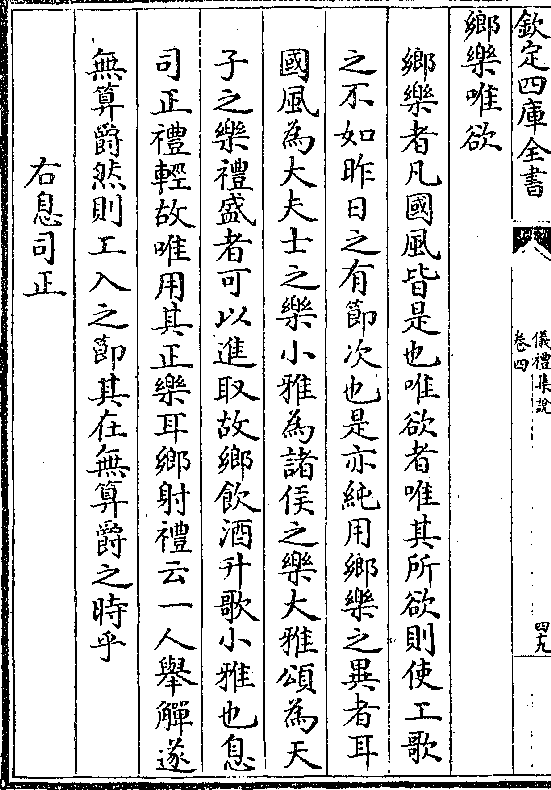 欽定四庫全書
儀禮集說
卷四
四九
鄉樂唯欲
鄉樂者凡國風皆是也唯欲者唯其所欲則使工歌
之不如昨日之有節次也是亦純用鄉樂之異者耳
國風為大夫士之樂小雅為諸侯之樂大雅頌為天
子之樂禮盛者可以進取故鄉飲酒升歌小雅也息
司正禮輕故唯用其正樂耳鄉射禮云一人舉觶遂
無算爵然則工入之節其在無算爵之時乎
右息司正